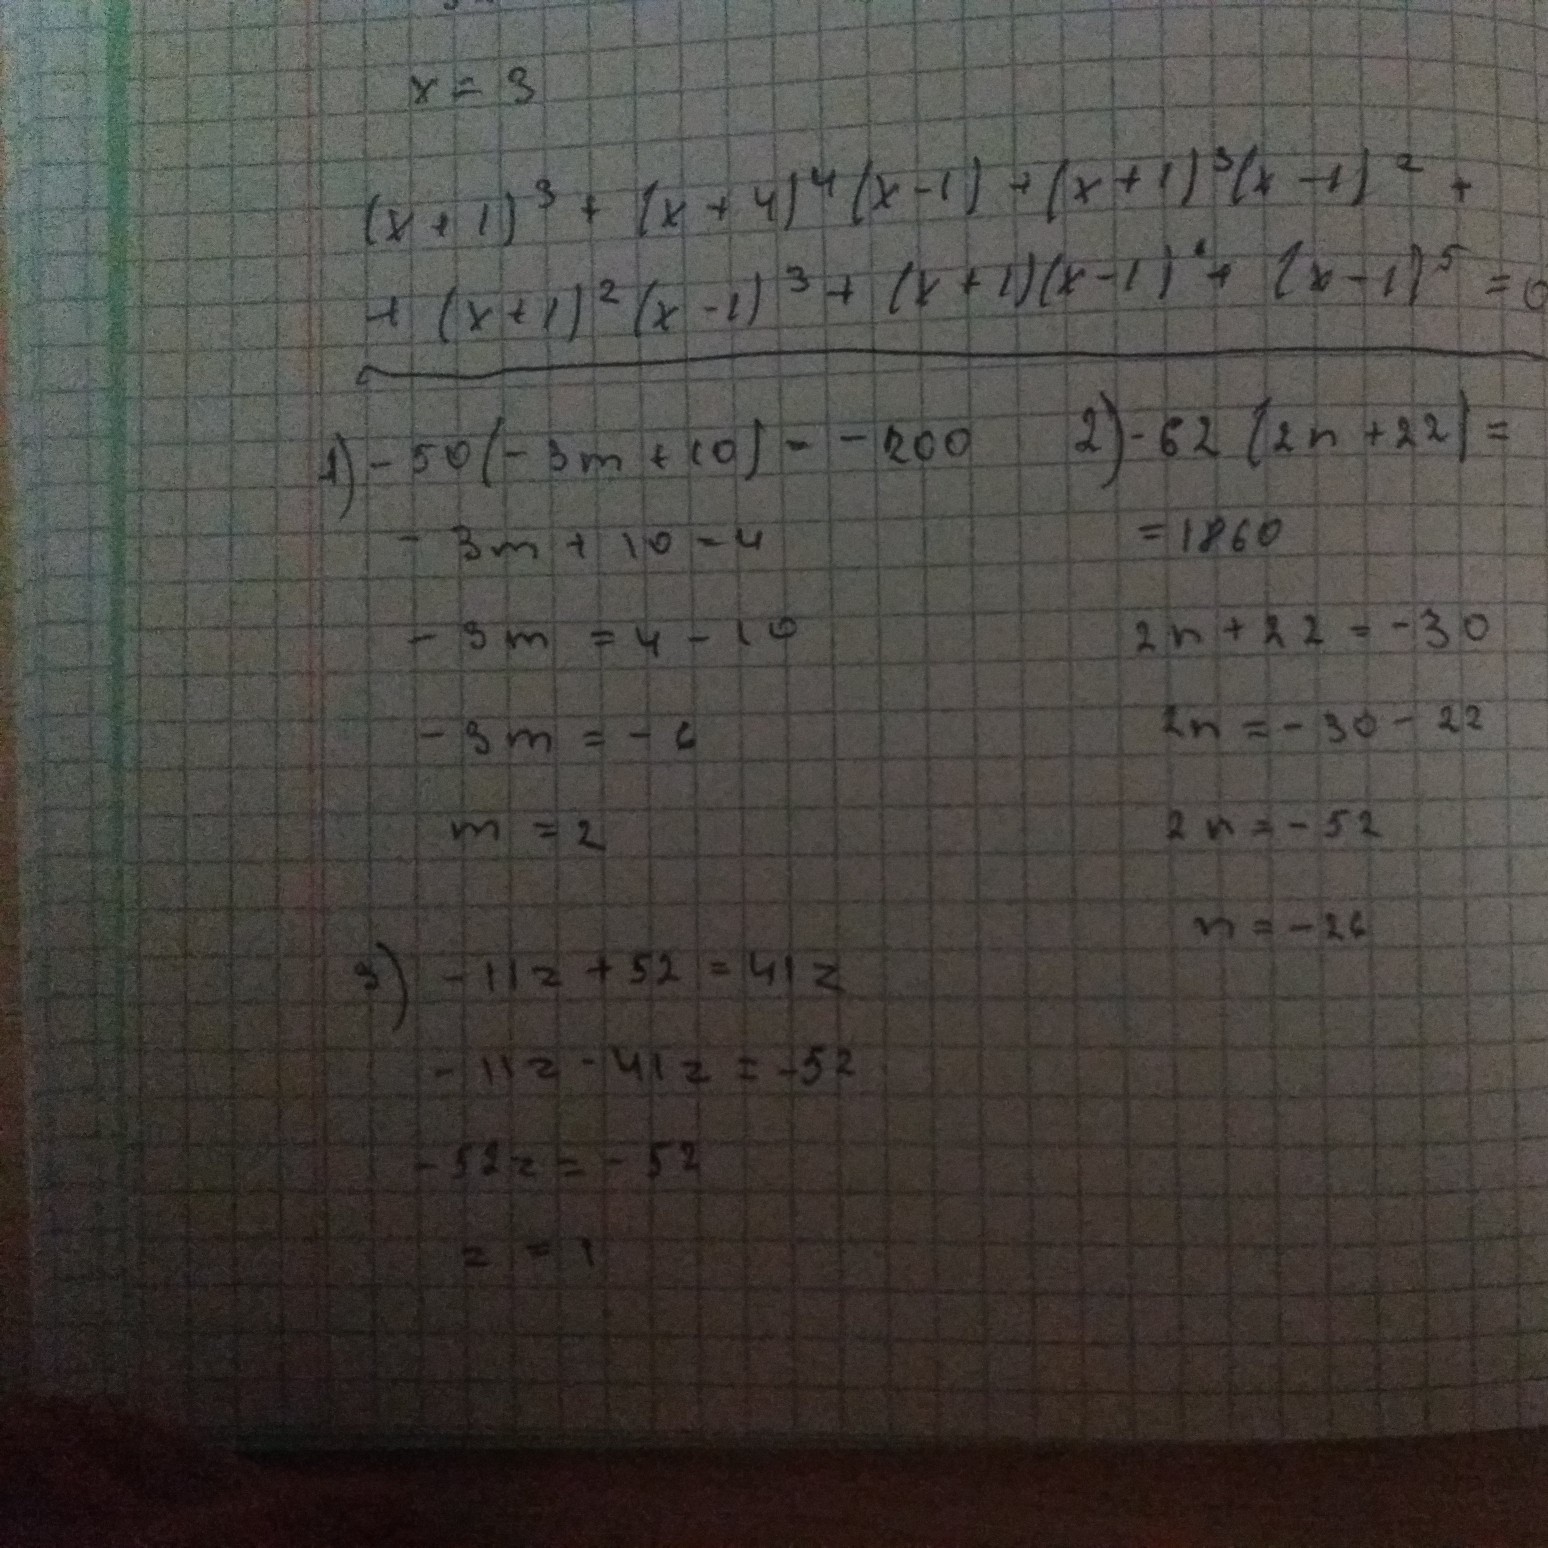 x = 3
(x + 1)³ + (x + 4)⁴(x - 1) + (x + 1)³(x - 1)² +
+ (x + 1)²(x - 1)³ + (x + 1)(x - 1)⁴ + (x - 1)⁵ = 0
1) - 50(- 3m + 10) = - 200
- 3m + 10 = 4
- 3m = 4 - 10
- 3m = - 6
m = 2
2) - 62(2n + 22) =
= 1860
2n + 22 = - 30
2n = - 30 - 22
2n = - 52
n = - 26
3) - 11z + 52 = 41z
- 11z - 41z = - 52
- 52z = - 52
z = 1